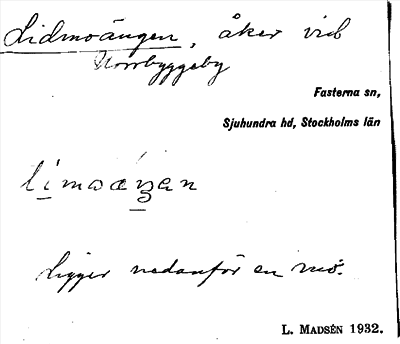 Lidmoängen, åker vid
Norrbyggeby
Fasterna sn,
Sjuhundra hd, Stockholms län
limoæŋan
Ligger nedanför en mo.
L. MADSÉN 1932.